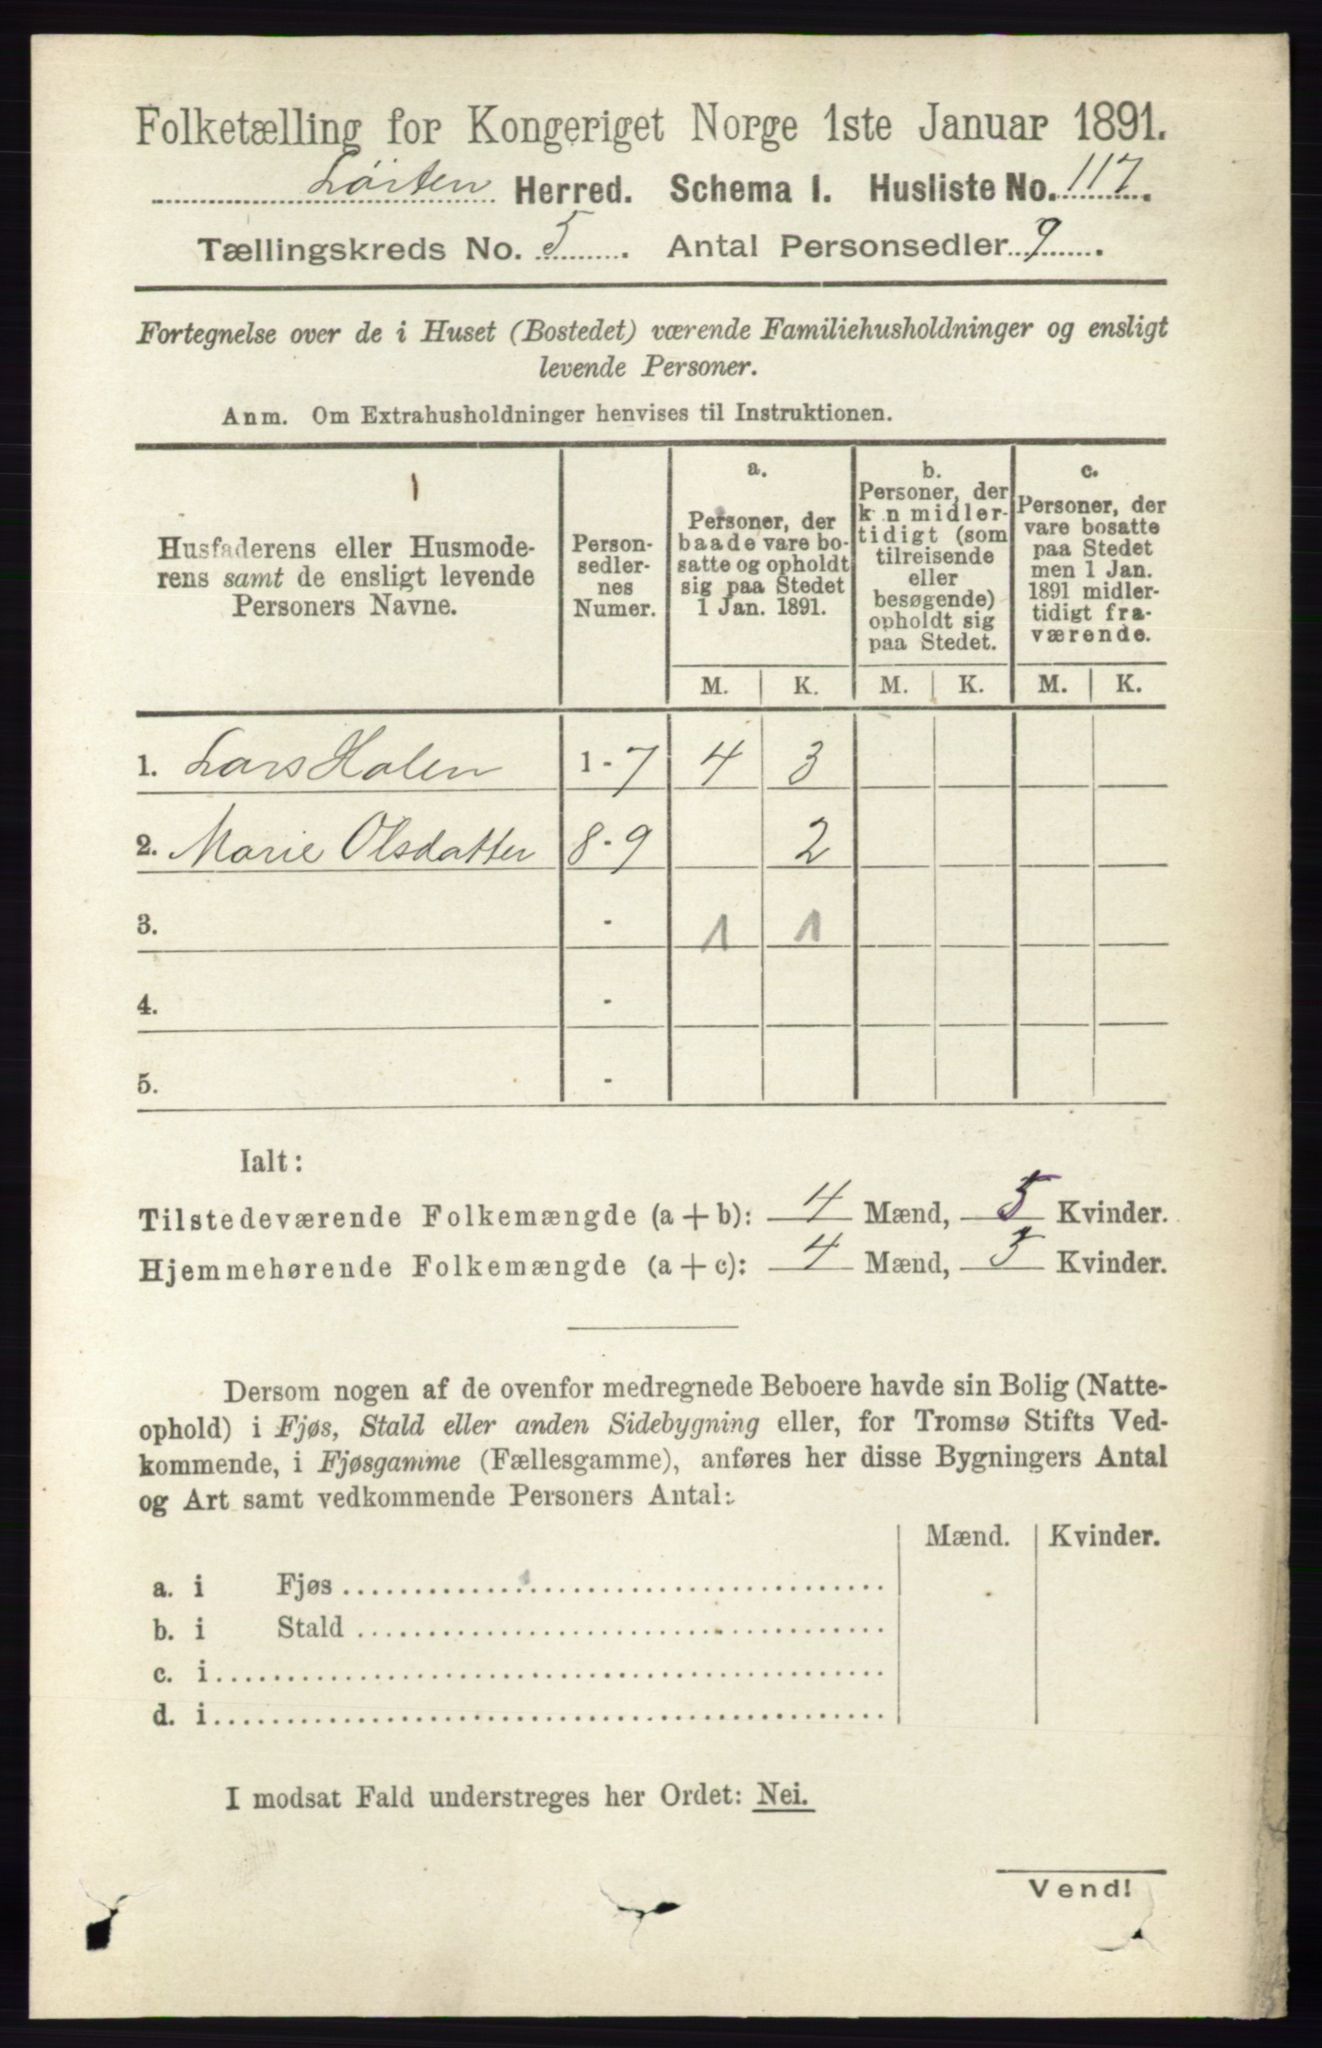 Folketælling for Kongeriget Norge 1ste Januar 1891.
Løiten Herred. Schema I. Husliste No. 117.
Tællingskreds No. 5. Antal Personsedler 9.
Fortegnelse over de i Huset (Bostedet) værende Familiehusholdninger og ensligt
levende Personer.
Anm. Om Extrahusholdninger henvises til Instruktionen.
Husfaderens eller Husmode-
rens samt de ensligt levende
Personers Navne.
Person-
sedler-
nes
Numer.
a.
Personer, der
baade vare bo-
satte og opholdt
sig paa Stedet
1 Jan. 1891.
b.
Personer, der
k n midler-
tidigt (som
tilreisende
eller
besøgende)
opholdt sig
paa Stedet.
c.
Personer, der
vare bosatte
paa Stedet
men 1 Jan.
1891 midler-
tidigt fra-
værende.
M. K. M. K. M. K.
1. Lars Holen 1 - 7 4 3
2. Marie Olsdatter 8 - 9 2
3. - 1 1
4. -
5. -
Ialt:
Tilstedeværende Folkemængde (a + b): 4 Mænd, 5 Kvinder.
Hjemmehørende Folkemængde (a + c): 4 Mænd, 5 Kvinder.
Dersom nogen af de ovenfor medregnede Beboere havde sin Bolig (Natte-
ophold) i Fjøs, Stald eller anden Sidebygning eller, for Tromsø Stifts Ved-
kommende, i Fjøsgamme (Fællesgamme), anføres her disse Bygningers Antal
og Art samt vedkommende Personers Antal:
Mænd. Kvinder.
a. i Fjøs
b. i Stald
c. i
d. i
I modsat Fald understreges her Ordet: Nei.
Vend!